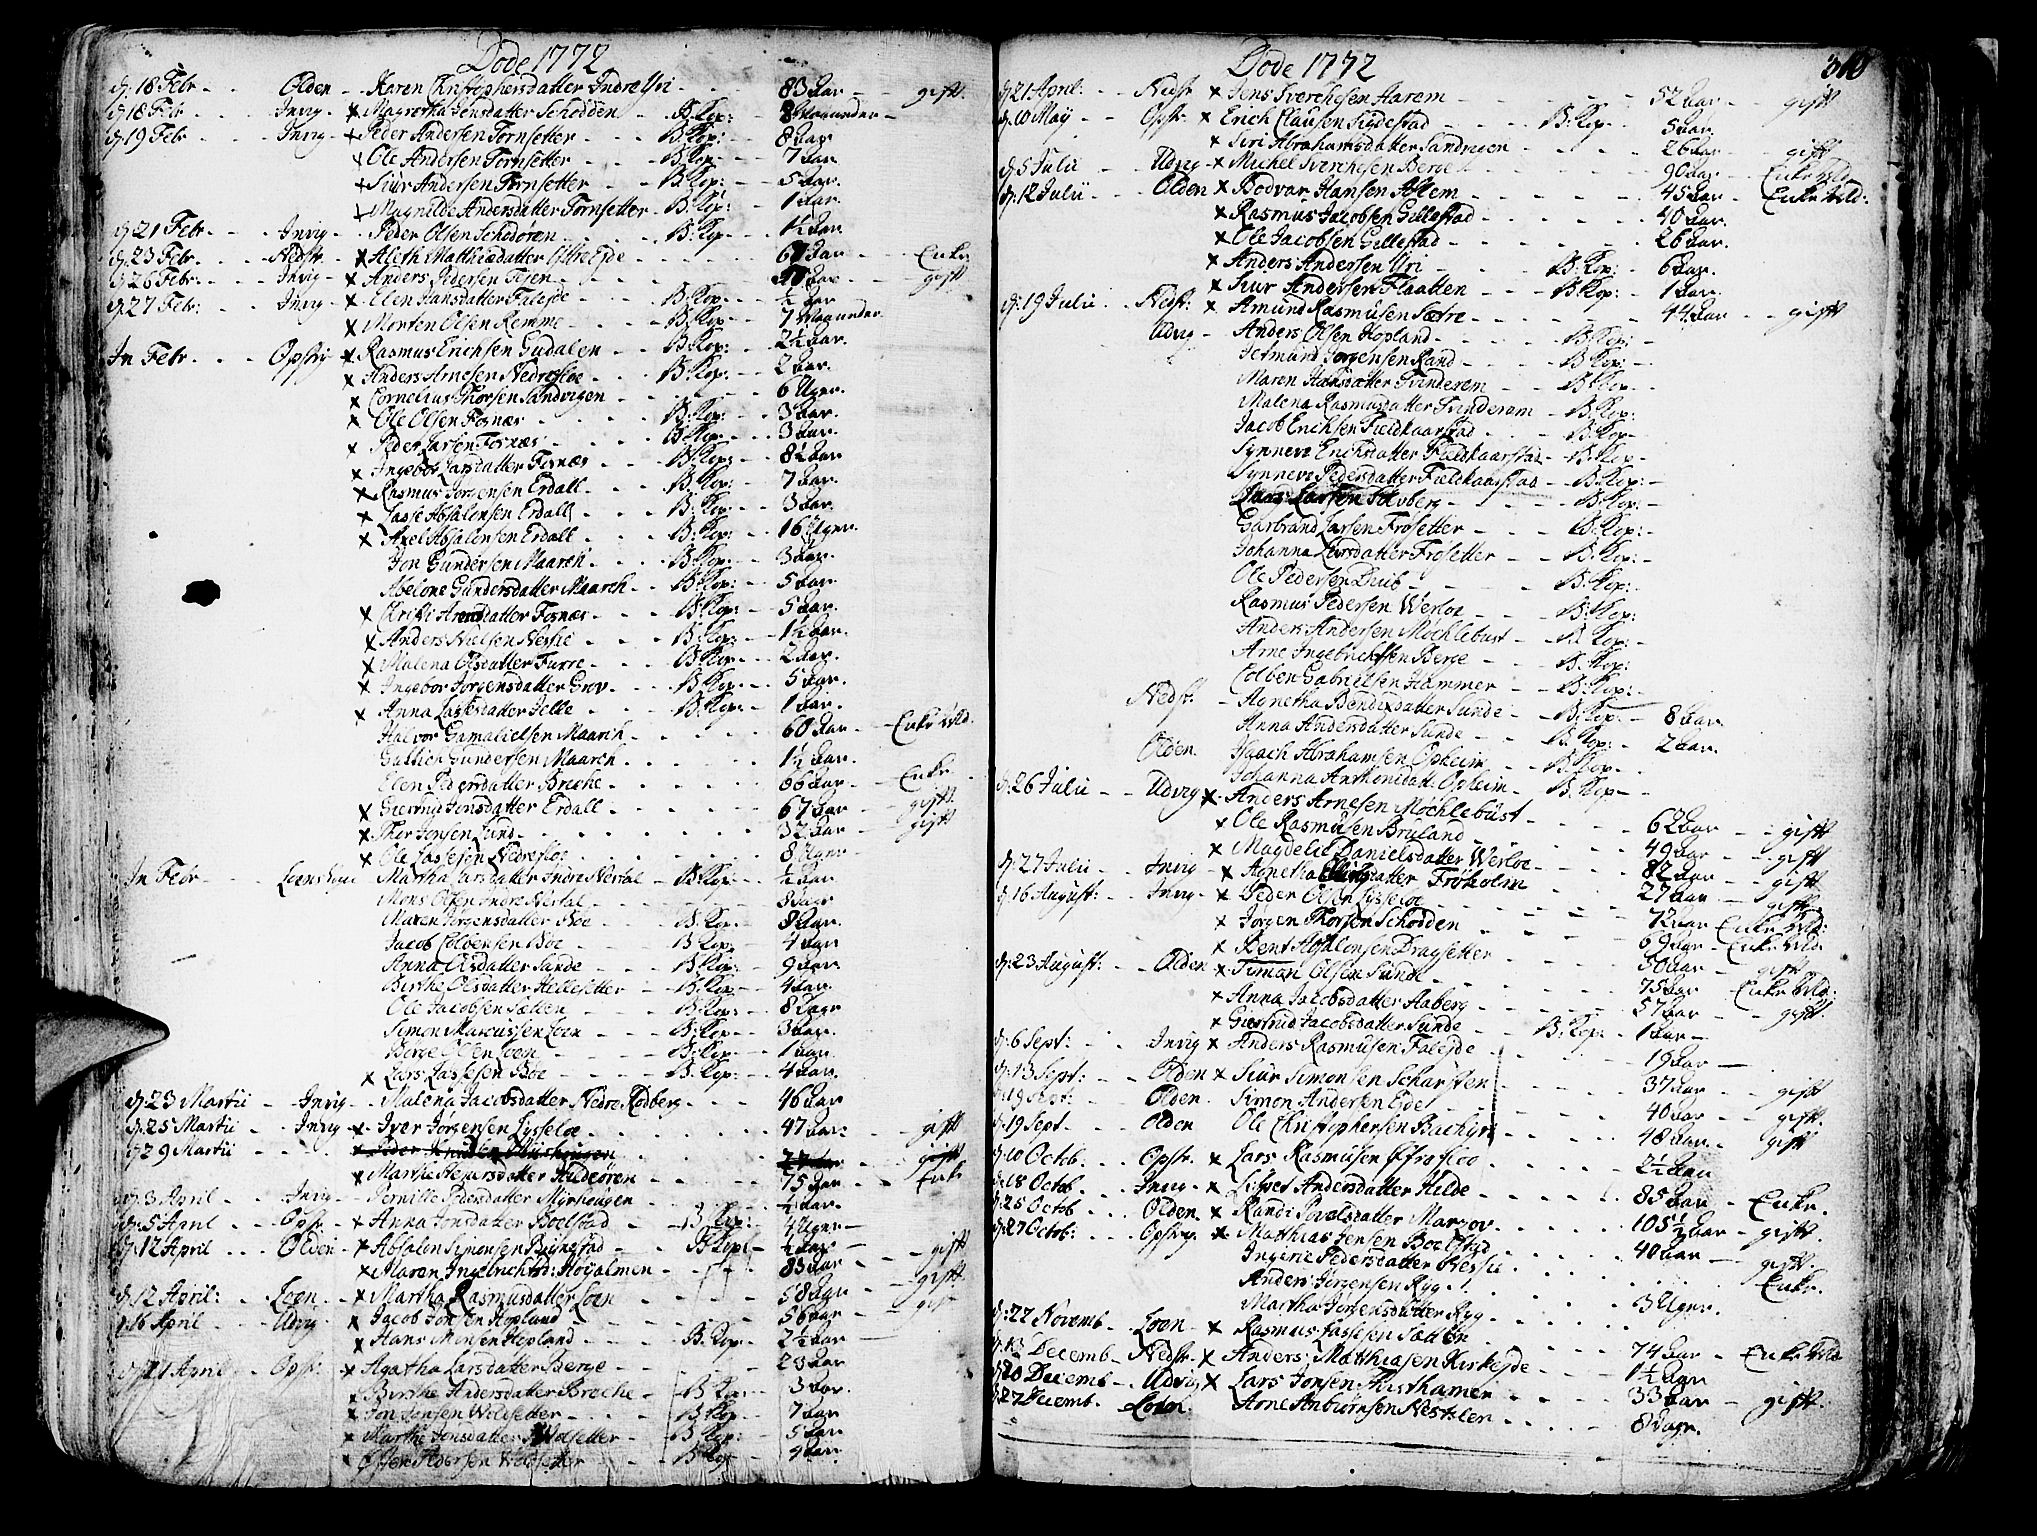 Døde 1772
d: 18 Febr - - Olden - Karen Christophersdatter Indre Yri - - 83 Aar - - gift.
d: 18 Febr - - Invig - × Magretha Jensdatter Schodden - B: Kop: - 8 Maaneder -
d: 19 Febr - - Invig - × Peder Andersen Tornsetter - B: Kop: - 8 Aar
× Ole Andersen Tornsetter - B: Kop: - 7 Aar
× Siur Andersen Tornsetter - B: Kop: - 5 Aar.
× Magnilde Andersdatter Tornsetter - B: Kop: - 1 Aar.
d: 21 Febr - - Invig - Peder Olsen - B: Kop - 1½ Aar.
d: 23 Febr. - - Nedstr. - × Aleth Matthiasdatter - - Aar - - Enke
d: 26 Febr. - - Invig - × Anders Pedersen - - Aar - - gift
d: 27 Febr: - - Invig - × Elen Hansdatter Faleyde - B: Kop. - ½ Aar
× Morten Olsen Remme - B: Kop - 7 Maaneder
In Febr - - Opstr - × Rasmus Erichsen Gudalen - B: Kop: - 2½ Aar.
× Anders Arnesen Nedrefloe - B: Kop: - 2 Aar.
× Cornelius Thorsen Sandvigen - - 6 Uger.
× Ole Olsen Fosnæs - B: Kop: - 3 Aar.
× Peder Larsen Fosnæs - B: Kop: - 3 Aar.
× Ingebor Larsdatter Fosnæs - B: Kop: - 8½ Aar
× Rasmus Jørgensen Erdall - B: Kop: - 7 Aar.
× Lasse Absalonsen Erdall - B: Kop: - 3 Aar.
× Axel Absalonsen Erdall - B: Kop: - 16 Uger.
Jon Gundersen Maarch - B: Kop: - 3 Aar.
Abelone Gundersdatter Maarch - B: Kop: - 5 Aar.
× Christi Arensdatter Fosnæs - B: Kop: - 5 Aar.
× Anders Nielsen Nessie - B: Kop: - 1½ Aar.
× Malena Olsdatter Furre - B: Kop - 2 Aar.
× Ingebor Jørgensdatter Grov - B: Kop: - 5 Aar.
× Anna Lassesdatter Telle - B: Kop: - 1 Aar.
Halvor Gamalielsen Maarch - - 60 Aar - Enke Md.
Gullich Gundersen Maarch - - 1½ Aar.
Elen Pedersdatter Breche - - 66 Aar - Enke
× Giertrud Jonsdatter Erdall - - 67 Aar - gift
× Thor Jonsen Lund - - 32 Aar - gift
× Ole Lassesen Nedrefloe - - 8 Uger -
In Febr - - Martha Larsdatter Indre Nestal - B: Kop: - ½ Aar
Mons Olsen Indre Nestal - - 8 Dage
Maren Jørgensdatter Boe - B: Kop: - 8 Aar.
Jacob Colbensen Boe - B: Kop: - 4 Aar
Anna Olsdatter Sande - B: Kop: - 9 Aar.
Birthe Olesdatter Hellesetter - B: Kop - 4 Aar.
Ole Jacobsen Sætten - B: Kop: - 8 Dage
Simon Marcussen Loen - B: Kop: - 3 Aar.
Børge Olsen Loen - B: Kop: - 1 Aar
× Lars Lassesen Boe - B: Kop: - 4 Aar.
d: 23 Martii - Invig - Malena Jacobsdatter Nedre Rødberg - - 46 Aar
d: 25 Martii - Invig - × Iver Jørgensen Lysseloe - - 47 Aar: - gift
d: 29 Martii - - × Peder Knudsen - - 27 Aar - gift
× Marthe Heyersdatter Hildeøren - - 75 Aar - Enke
d: 3 April - Invig - Pernille Pedersdatter Myrhougen - - ½ Aar.
d: 5 April - Opstr - × Anna Jonsdatter Boelstad - B: Kop: - 4 Uger -
d: 12 April - Olden - × Absalon Simonsen Brynestad - B: Kop: - ½ Aar -
× Maren Ingebrichtsd: Høyalmen - - 83 Aar - gift
d: 12 April: - Loen - × Martha Rasmusdatter Loen - - 58 Aar - gift
d: 16 April - Udvig - × Jacob Jonsen Hopland - - 56 Aar - gift
× Hans Monsen Hopland - B: Kop - 2½ Aar
d: 21 April - Opstr: - × Agatha Larsdatter Berge - - 23 Aar
× Birthe Andersdatter Breche - B: Kop - 3 Aar.
× Jon Jonsen Woldsetter - B: Kop - 7 Aar
× Marthe Jonsdatter Woldsetter - B: Kop: - 5 Aar
× Peder Pedersen Woldsetter - B: Kop - 9 Aar.
Døde 1772
d: 21 April: - - Nedstr × Jens Sverchesen Aarem - - 52 Aar - - gift
d: 10 May - - Opstr: × Erich Clausen Sigdestad - B: Kop - 5 Aar
× Siri Abrahamsdatter Sandvigen - - 26 Aar - gift
d: 5 Julii - Udvig - × Michel Sverchesen Berge - - 90 Aar - Enke Md
d: 12 Julii - Olden × Bodvar Hansen Aslem - - 45 Aar - Enke Md:
× Rasmus Jacobsen Gillestad - - 40 Aar.
× Ole Jacobsen Gillestad - - 26 Aar.
× Anders Andersen Yri - B: Kop: - 6 Aar.
× Siur Andersen Flaatten - B: Kop: - 1 Aar.
d: 19 Julii - Nedstr: × Amund Rasmusen Sætre - - 44 Aar - gift
Udvig - Anders Olsen Hopland - B: Kop: -
Jetmund Jørgensen Rand - B: Kop: -
Maren Hansdatter Tvinderem - B: Kop -
Malena Rasmusdatter Tvinderem - B: Kop:
Jacob Erichsen Fieldkaarstad - B: Kop -
Synneve Erichsdatter Fieldkaarstad - B: Kop -
Synneve Pedersdatter Fieldkaarstad - B: Kop: -
Lars Larsen Solvberg - B: Kop: -
Garbrand Larsen Frosetter - B: Kop: -
Johanna Larsdatter Frosetter - B: Kop: -
Ole Pedersen Drub - B: Kop:
Rasmus Pedersen Werloe - B: Kop: -
Anders Andersen Møchlebust - B: Kop: -
Arne Ingebrichtsen Berge - B: Kop:
Colben Gabrielsen Hammer - B: Kop: -
Nedstr. - Agnetha Bendixdatter Sunde - B: Kop: - 8 Aar
Anna Andersdatter Sunde - B: Kop: - 2 Aar.
Olden - Isaach Abrahamsen Opheim - B: Kop -
Johanna Anthonidatt: Opheim - B: Kop -
d: 26 Julii - Udvig × Anders Arnesen Møchlebust - - 62 Aar - gift
× Ole Rasmusen Bruland - - 49 Aar - gift
× Magdeli Danielsdatter Werloe - - 82 Aar - gift
d: 27 Julii - Invig - × Agnetha datter Frøholm - - 27 Aar - gift
d: 16 August: - Invig - × Peder Olsen Lysseloe - - 72 Aar Enke Md:
× Jørgen Thorsen Schodden - - 69 Aar - Enke Md.
× Bent Absalonsen Dragsetter - - 50 Aar - gift
d: 23 August: - Olden × Simon Olsen Sunde - - 75 Aar - Enke Md:
× Anna Jacobsdatter Aaberg - - 57 Aar - gift
× Giertrud Jacobsdatter Sunde - B: Kop: - 1 Aar -
d: 6 Sept: - Invig × Anders Rasmusen Faleyde - - 19 Aar -
d: 13 Sept: - Olden × Siur Simonsen Scharsten - - 37 Aar - gift
d: 19 Sept: - Olden - Simon Andersen Eyde - - 40 Aar - gift.
d: 19 Sept - Olden - Ole Christophersen - - 48 Aar - gift
d: 10 Octob: - Opstr. × Lars Rasmusen Efrefloe - - 2½ Aar
d: 18 Octob - Invig - × Lisbet Andersdatter Hilde - - 85 Aar - Enke.
d: 25 Octob - Olden × Randi Povelsdatter - - 105½ Aar - gift.
d: 27 Octob: - Opstrg - × Matthias Jensen Boelstad - - 40 Aar - gift.
Ingerie Pedersdatter Nessie - - Enke.
Anders Jørgensen Ryg - - 3 Uger.
Martha Jørgensdatter Ryg - -
d: 22 Novemb - Loen - × Rasmus Lassesen Sætten - - 74 Aar - Enke Md
d: 13 Decemb - Nedstr. × Anders Matthiasen Kirkeyde - - 1½ Aar
d: 20 Decemb - Udvig × Lars Jonsen Thisthamer - - 33 Aar - gift.
d: 27 Decemb. - Loen - Arne Anbiørnsen Nestelen - - 8 Dage.